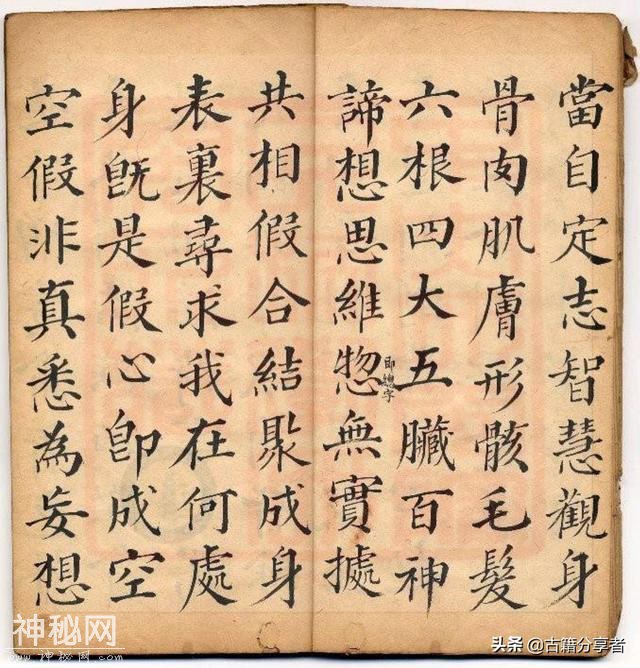 當自定志智慧觀身
骨肉肌膚形骸毛髮
六根四大五臟百神
諦想思維惣無實𢹂
即總字
共相假合結聚成身
表裏尋求我在何處
身旣是假心卽成空
空假非真悉為妄想
神秘网
www.shenmiw.com
头条 @古籍分享者